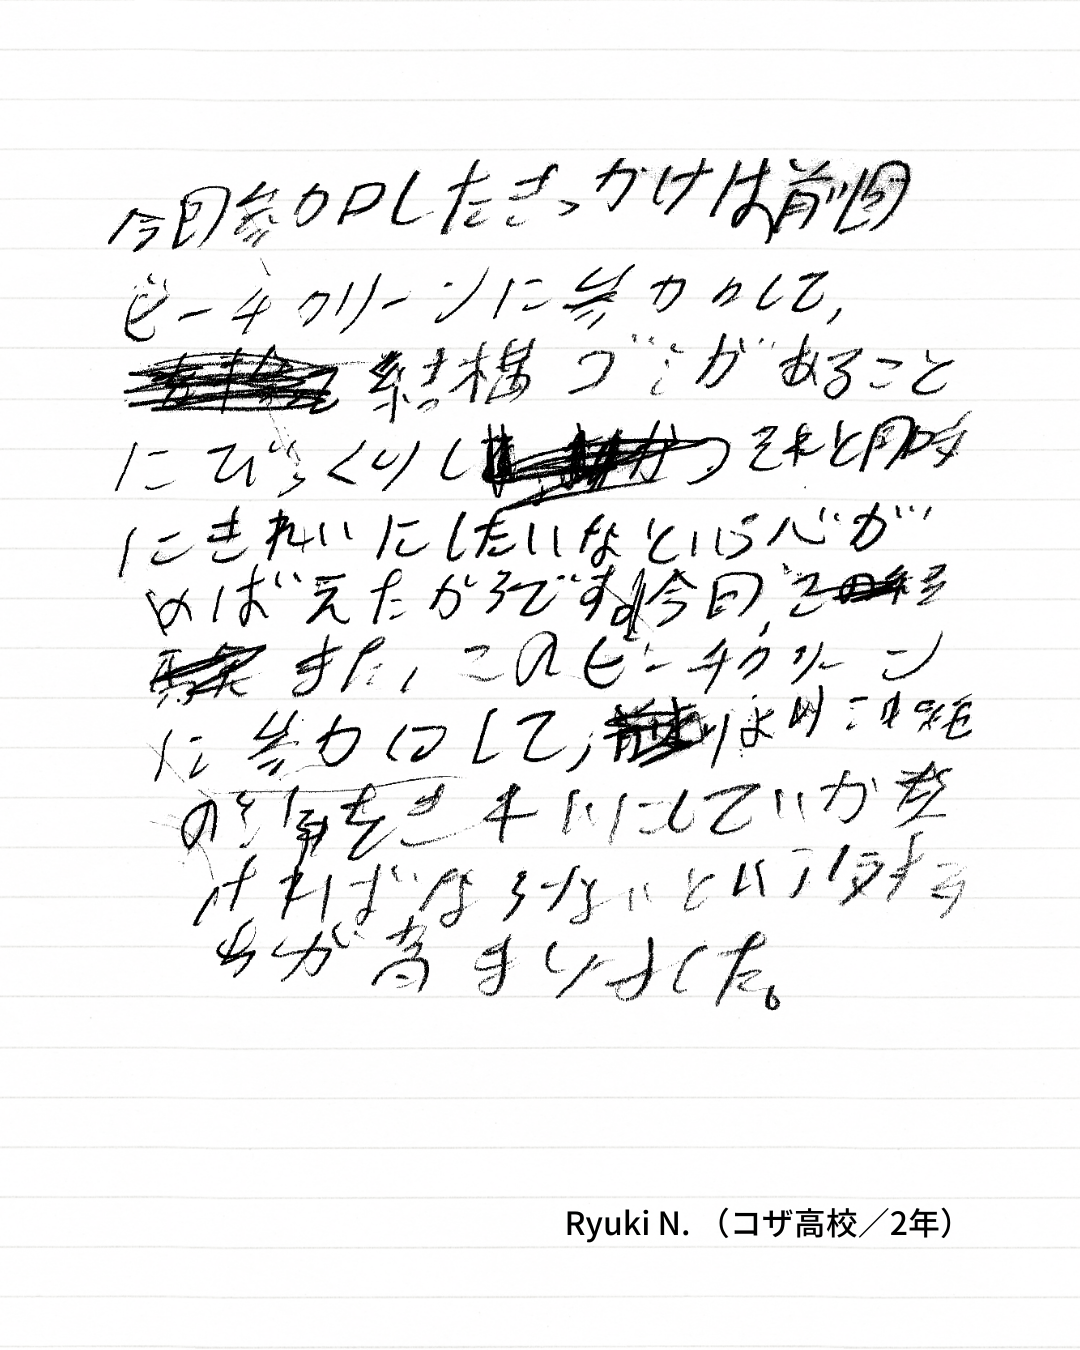 今回参加したきっかけは前回
ビーチクリーンに参加して、
結構ゴミがあること
にびっくりし それと同時
にきれいにしたいなという心が
めばえたからです。今回、
また、このビーチクリーン
に参加して、より
の海をきれいにしていかな
ければならないという気持
ちが高まりました。
Ryuki N. （コザ高校／2年）